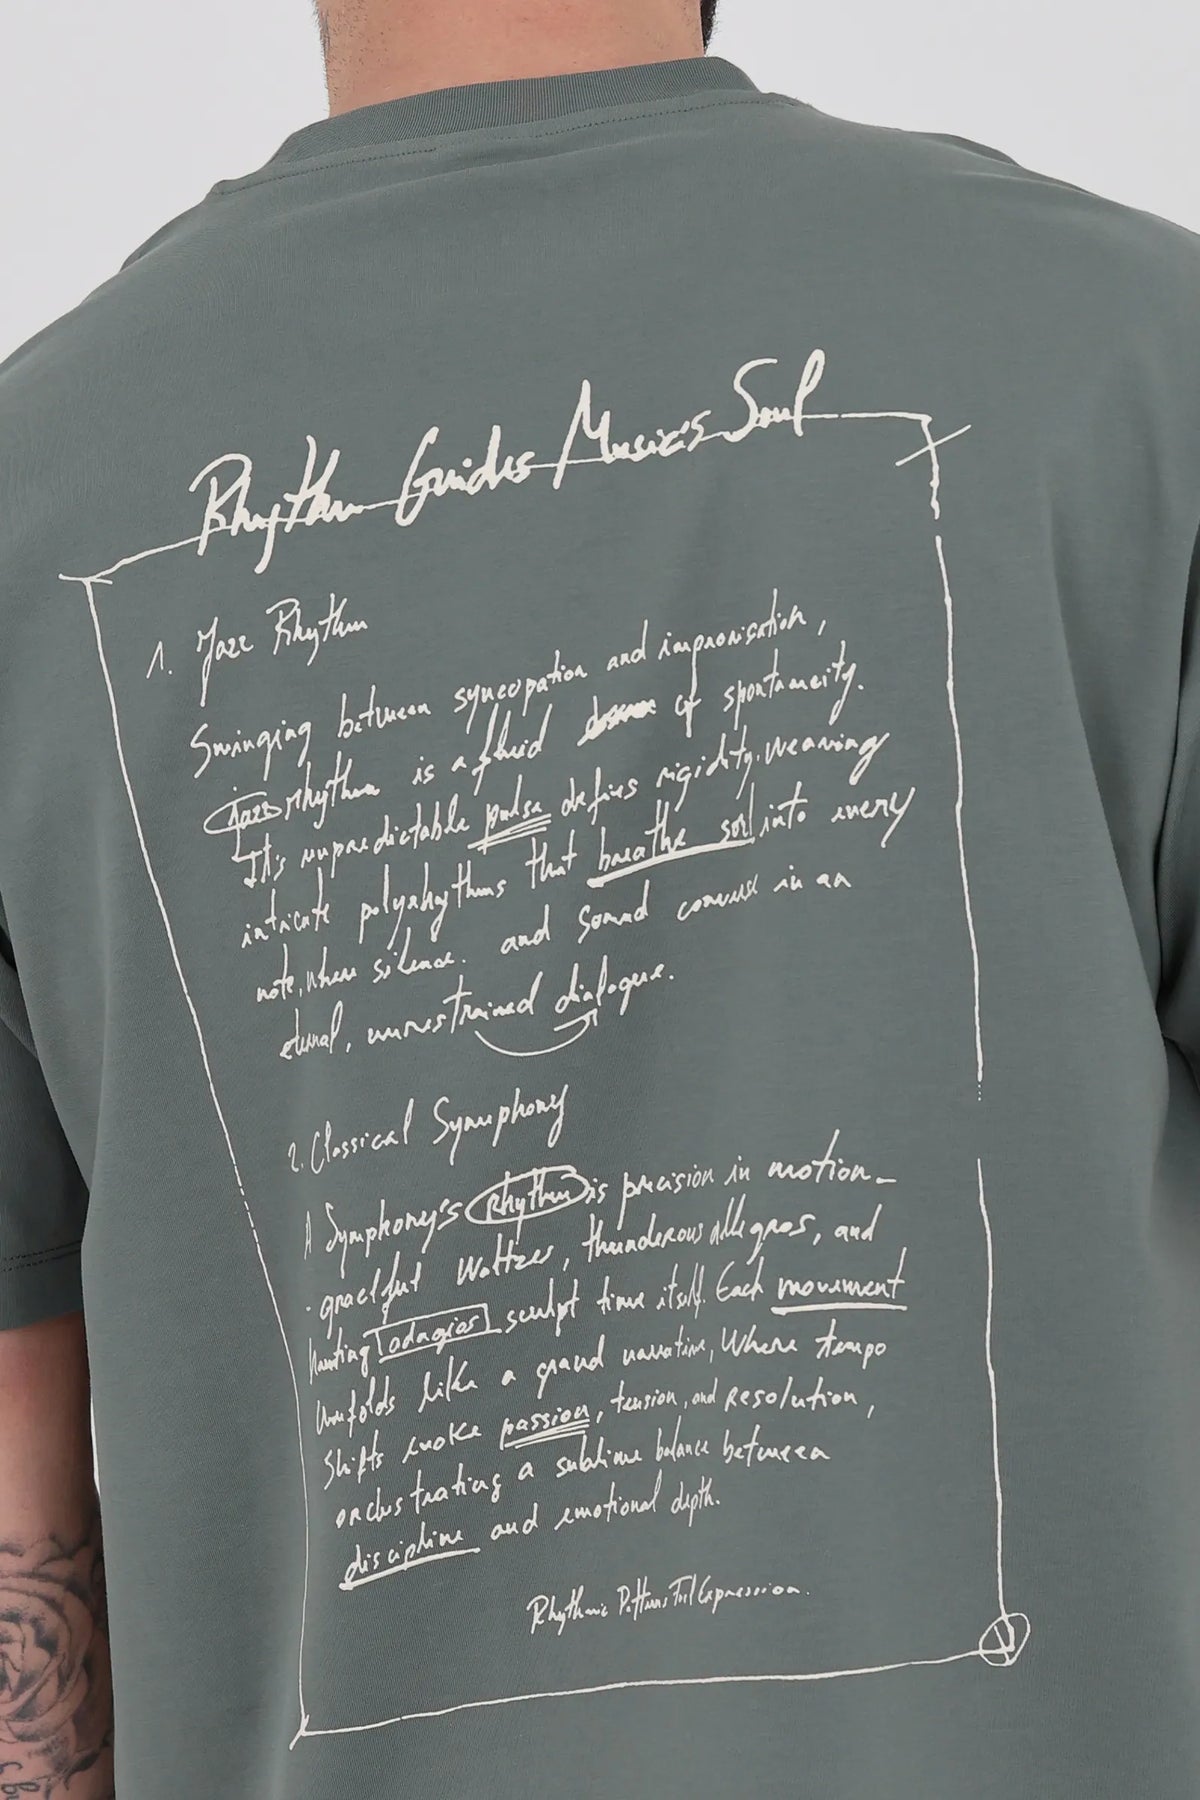 Rhythm Guides Music's Soul
1. Jazz Rhythm
Swinging between syncopation and improvisation,
Jazz rhythm is a fluid of spontaneity.
It's unpredictable pulse defies rigidity. weaving
intricate polyrhythms that breathe soul into every
note, where silence. and sound converse in an
eternal, unrestrained dialogue.
2. Classical Symphony
A Symphony's rhythm is precision in motion_
graceful waltzes, thunderous allegros, and
haunting adagios sculpt time itself. Each movement
unfolds like a grand narrative, Where tempo
shifts evoke passion, tension, and resolution,
orchestrating a sublime balance between
discipline and emotional depth.
Rhythmic Patterns Fuel Expression.